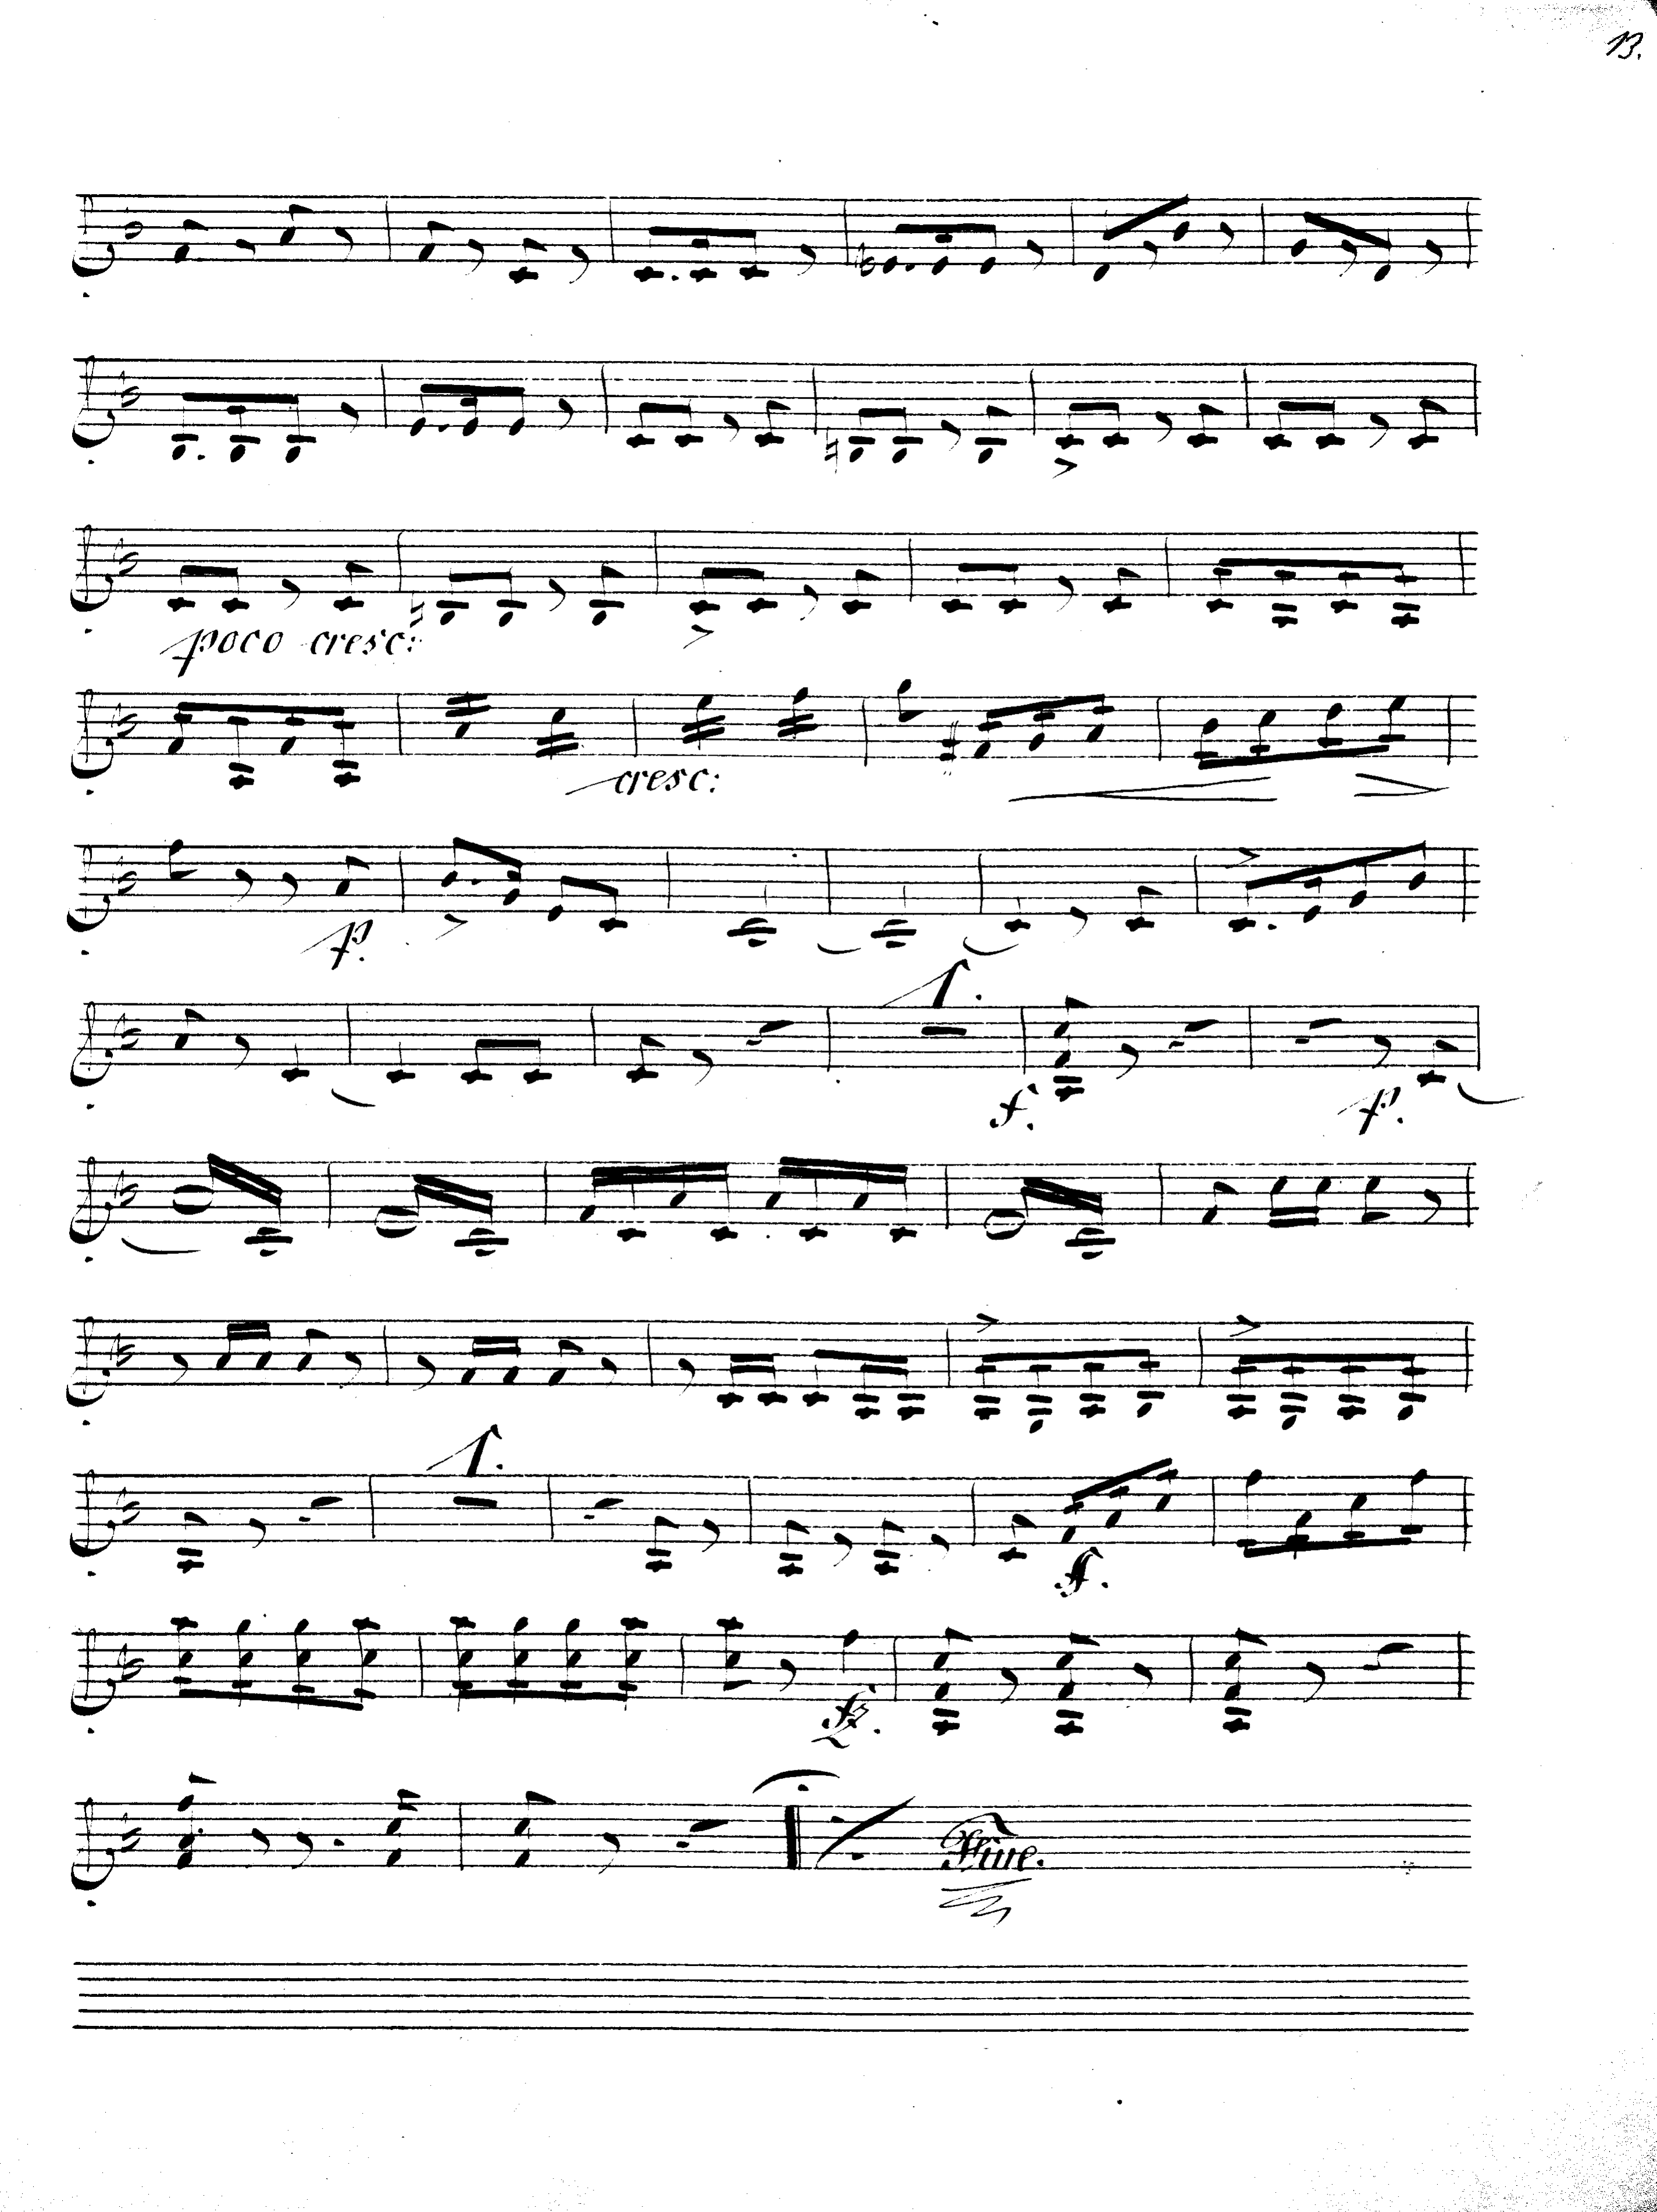 13.
poco cresc:
cresc:
p.
1.
f. p.
1.
f.
fz.
Fine.